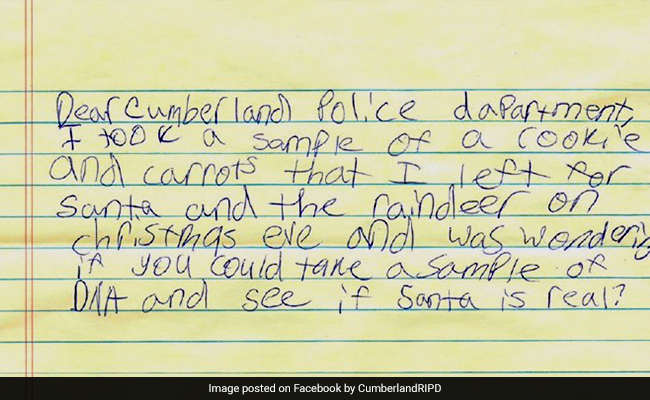 Dear Cumberland Police dapartment,
I took a sample of a cookie
and carrots that I left for
Santa and the raindeer on
christmas eve and was wondering
if you could take a sample of
DNA and see if Santa is real?
Image posted on Facebook by CumberlandRIPD